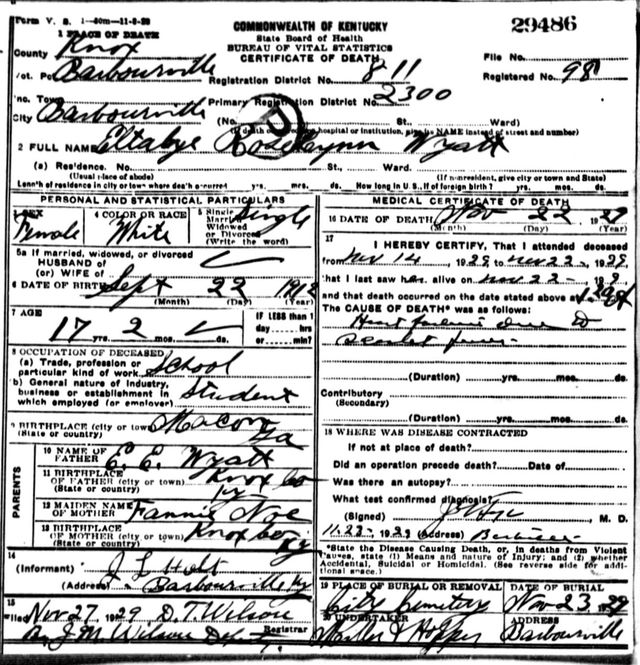 Form V. S. 1—50m—11-8-28
29486
1 PLACE OF DEATH
COMMONWEALTH OF KENTUCKY
State Board of Health
BUREAU OF VITAL STATISTICS
CERTIFICATE OF DEATH
County Knox
File No.
Vot. Barbourville
Registration District No. 811
Registered No. 98
Inc. Town
Primary Registration District No. 2300
City Barbourville (No. St., Ward)
(If death occurred in hospital or institution, give its NAME instead of street and number)
2 FULL NAME Roselynn Wyatt
(a) Residence. No. St., Ward.
(Usual place of abode) (If nonresident, give city or town and State)
Length of residence in city or town where death occurred yrs. mos. ds. How long in U. S., if of foreign birth? yrs. mos. ds.
PERSONAL AND STATISTICAL PARTICULARS
3 SEX Female
4 COLOR OR RACE White
5 Single Married Widowed or Divorced (Write the word) Single
5a If married, widowed, or divorced
HUSBAND of
(or) WIFE of
6 DATE OF BIRTH Sept 22 1912
(Month) (Day) (Year)
7 AGE 17 yrs. 2 mos. ds.
IF LESS than 1
day hrs.
or min.
8 OCCUPATION OF DECEASED
(a) Trade, profession or
particular kind of work School
b) General nature of Industry,
business or establishment in
which employed (or employer) Student
9 BIRTHPLACE (city or town) Macon
(State or country) Ga
PARENTS
10 NAME OF
FATHER E. E. Wyatt
11 BIRTHPLACE
OF FATHER (city or town) Knox Co
(State or country) Ky
12 MAIDEN NAME
OF MOTHER Fannie Noe
13 BIRTHPLACE
OF MOTHER (city or town) Knox Co
(State or country) Ky
14
(Informant) J L Holt
(Address) Barbourville Ky
15
Filed Nov 27 1929 D. T. Wilson
By J M Wilson Registrar
MEDICAL CERTIFICATE OF DEATH
16 DATE OF DEATH Nov 22 1929
(Month) (Day) (Year)
17
I HEREBY CERTIFY, That I attended deceased
from Nov 14 1929 to Nov 22 1929
that I last saw her alive on Nov 22 1929
and that death occurred on the date stated above at
The CAUSE OF DEATH* was as follows:
Heart failure due to
Scarlet fever
(Duration) yrs. mos. ds.
Contributory
(Secondary)
(Duration) yrs. mos. ds.
18 WHERE WAS DISEASE CONTRACTED
If not at place of death?
Did an operation precede death? Date of
Was there an autopsy?
What test confirmed diagnosis?
(Signed) M. D.
11-22- 1929 (Address)
*State the Disease Causing Death, or, in deaths from Violent
Causes, state (1) Means and nature of Injury; and (2) whether
Accidental, Suicidal or Homicidal. (See reverse side for addi-
tional space.)
19 PLACE OF BURIAL OR REMOVAL City Cemetery
DATE OF BURIAL Nov 23 29
20 UNDERTAKER Hopper
ADDRESS Barbourville